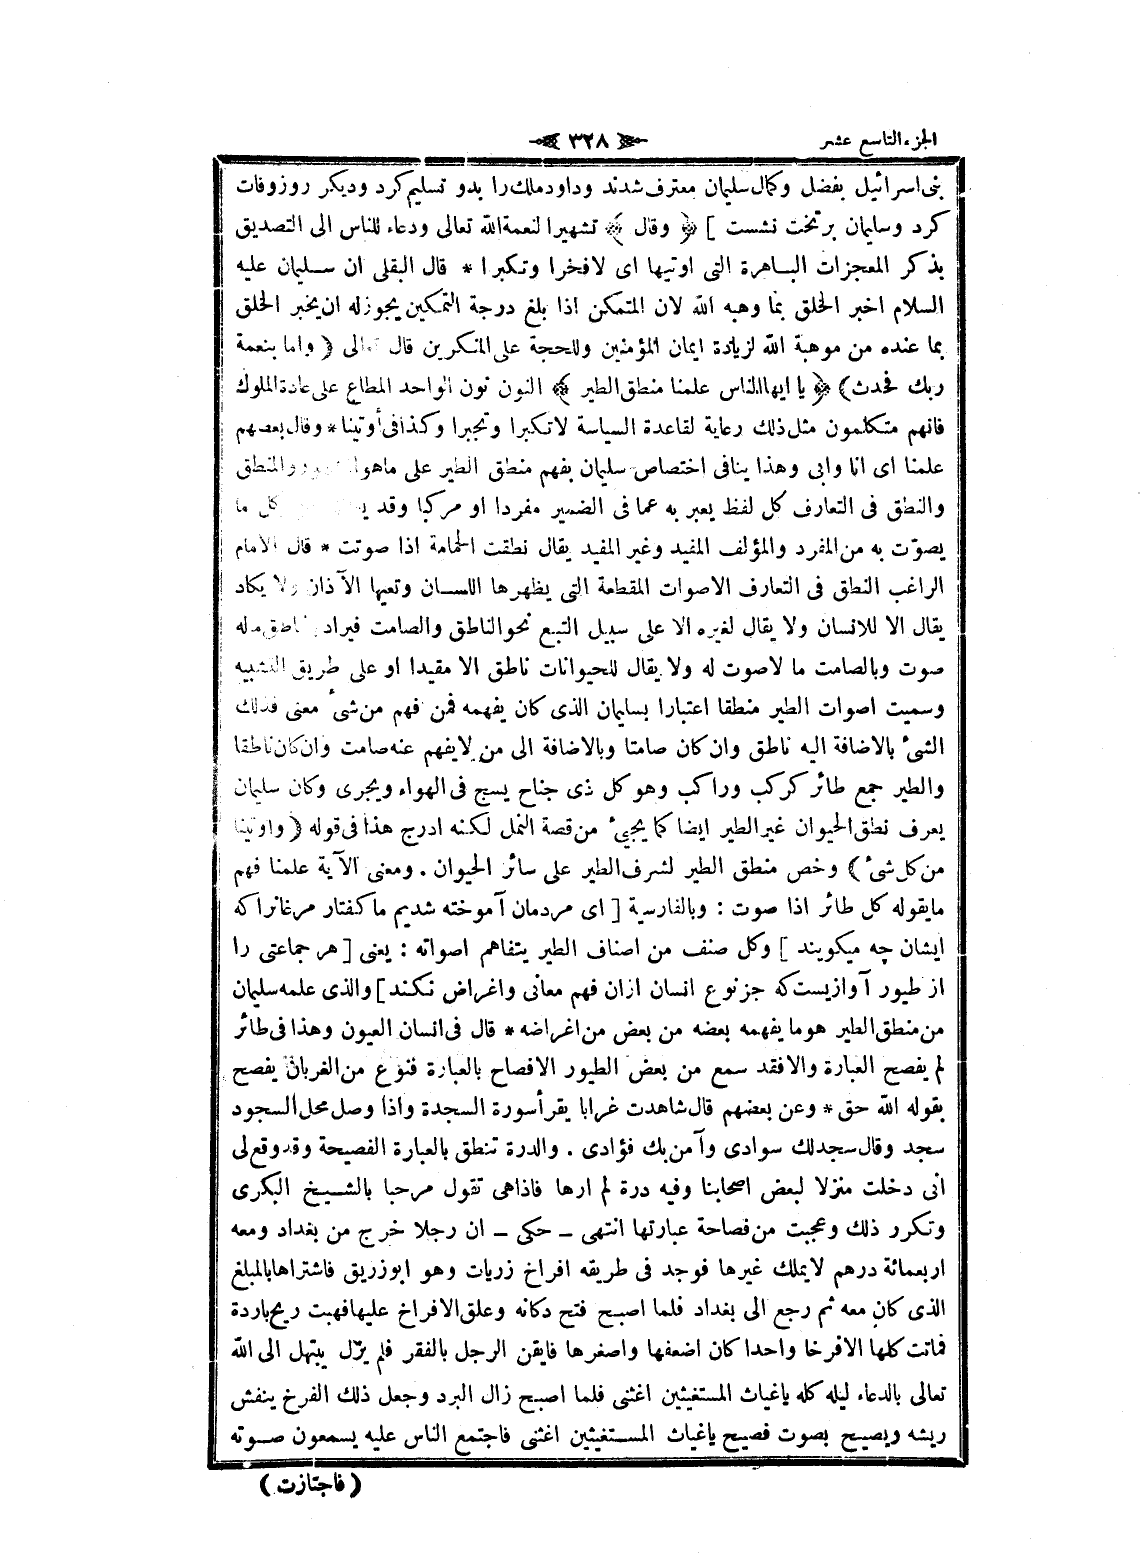 الجزء التاسع عشر
٣٢٨
بنى اسرائيل بفضل وكمال سليمان معترف شدند وداود ملك را بدو تسليم كرد وديكر روز وفات
كرد وسليمان بر تخت نشست ] ﴿ وقال ﴾ تشهيرا لنعمة الله تعالى ودعاء للناس الى التصديق
بذكر المعجزات الباهرة التى اوتيها اى لا فخرا وتكبرا * قال البقلى ان سليمان عليه
السلام اخبر الخلق بما وهبه الله لان المتمكن اذا بلغ درجة التمكين يجوز له ان يخبر الخلق
بما عنده من موهبة الله لزيادة ايمان المؤمنين وللحجة على المنكرين قال تعالى ( واما بنعمة
ربك فحدث ) ﴿ يا ايها الناس علمنا منطق الطير ﴾ النون نون الواحد المطاع على عادة الملوك
فانهم متكلمون مثل ذلك رعاية لقاعدة السياسة لا تكبرا وتجبرا وكذا فى أوتينا * وقال بعضهم
علمنا اى انا وابى وهذا ينافى اختصاص سليمان بفهم منطق الطير على ما هو والمنطق
والنطق فى التعارف كل لفظ يعبر به عما فى الضمير مفردا او مركبا وقد كل ما
يصوّت به من المفرد والمؤلف المفيد وغير المفيد يقال نطقت الحمامة اذا صوتت * قال الامام
الراغب النطق فى التعارف الاصوات المقطعة التى يظهرها اللسان وتعيها الآذان ولا يكاد
يقال الا للانسان ولا يقال لغيره الا على سبيل التبع نحو الناطق والصامت فيراد بالناطق ماله
صوت وبالصامت ما لا صوت له ولا يقال للحيوانات ناطق الا مقيدا او على طريق التشبيه
وسميت اصوات الطير منطقا اعتبارا بسليمان الذى كان يفهمه فمن فهم من شىء معنى فذلك
الشىء بالاضافة اليه ناطق وان كان صامتا وبالاضافة الى من لا يفهم عنه صامت وان كان ناطقا
والطير جمع طائر كركب وراكب وهو كل ذى جناح يسبح فى الهواء ويجرى وكان سليمان
يعرف نطق الحيوان غير الطير ايضا كما يجىء من قصة النمل لكنه ادرج هذا فى قوله ( واوتينا
من كل شىء ) وخص منطق الطير لشرف الطير على سائر الحيوان . ومعنى الآية علمنا فهم
ما يقوله كل طائر اذا صوت : وبالفارسية [ اى مردمان آموخته شديم ما كفتار مرغانرا كه
ايشان چه ميكويند ] وكل صنف من اصناف الطير يتفاهم اصواته : يعنى [ هر جماعتى را
از طيور آوازيست كه جز نوع انسان ازان فهم معانى واغراض نكند ] والذى علمه سليمان
من منطق الطير هو ما يفهمه بعضه من بعض من اغراضه * قال فى انسان العيون وهذا فى طائر
لم يفصح العبارة والا فقد سمع من بعض الطيور الافصاح بالعبارة فنوع من الغربان يفصح
بقوله الله حق * وعن بعضهم قال شاهدت غرابا يقرأ سورة السجدة واذا وصل محل السجود
سجد وقال سجد لك سوادى وآمن بك فؤادى . والدرة تنطق بالعبارة الفصيحة وقد وقع لى
انى دخلت منزلا لبعض اصحابنا وفيه درة لم ارها فاذا هى تقول مرحبا بالشيخ البكرى
وتكرر ذلك وعجبت من فصاحة عبارتها انتهى ـ حكى ـ ان رجلا خرج من بغداد ومعه
اربعمائة درهم لا يملك غيرها فوجد فى طريقه افراخ زريات وهو ابو زريق فاشتراها بالمبلغ
الذى كان معه ثم رجع الى بغداد فلما اصبح فتح دكانه وعلق الافراخ عليها فهبت ريح باردة
فماتت كلها الا فرخا واحدا كان اضعفها واصغرها فايقن الرجل بالفقر فلم يزل يبتهل الى الله
تعالى بالدعاء ليله كله يا غياث المستغيثين اغثنى فلما اصبح زال البرد وجعل ذلك الفرخ ينفش
ريشه ويصيح بصوت فصيح يا غياث المستغيثين اغثنى فاجتمع الناس عليه يسمعون صوته
( فاجتازت )